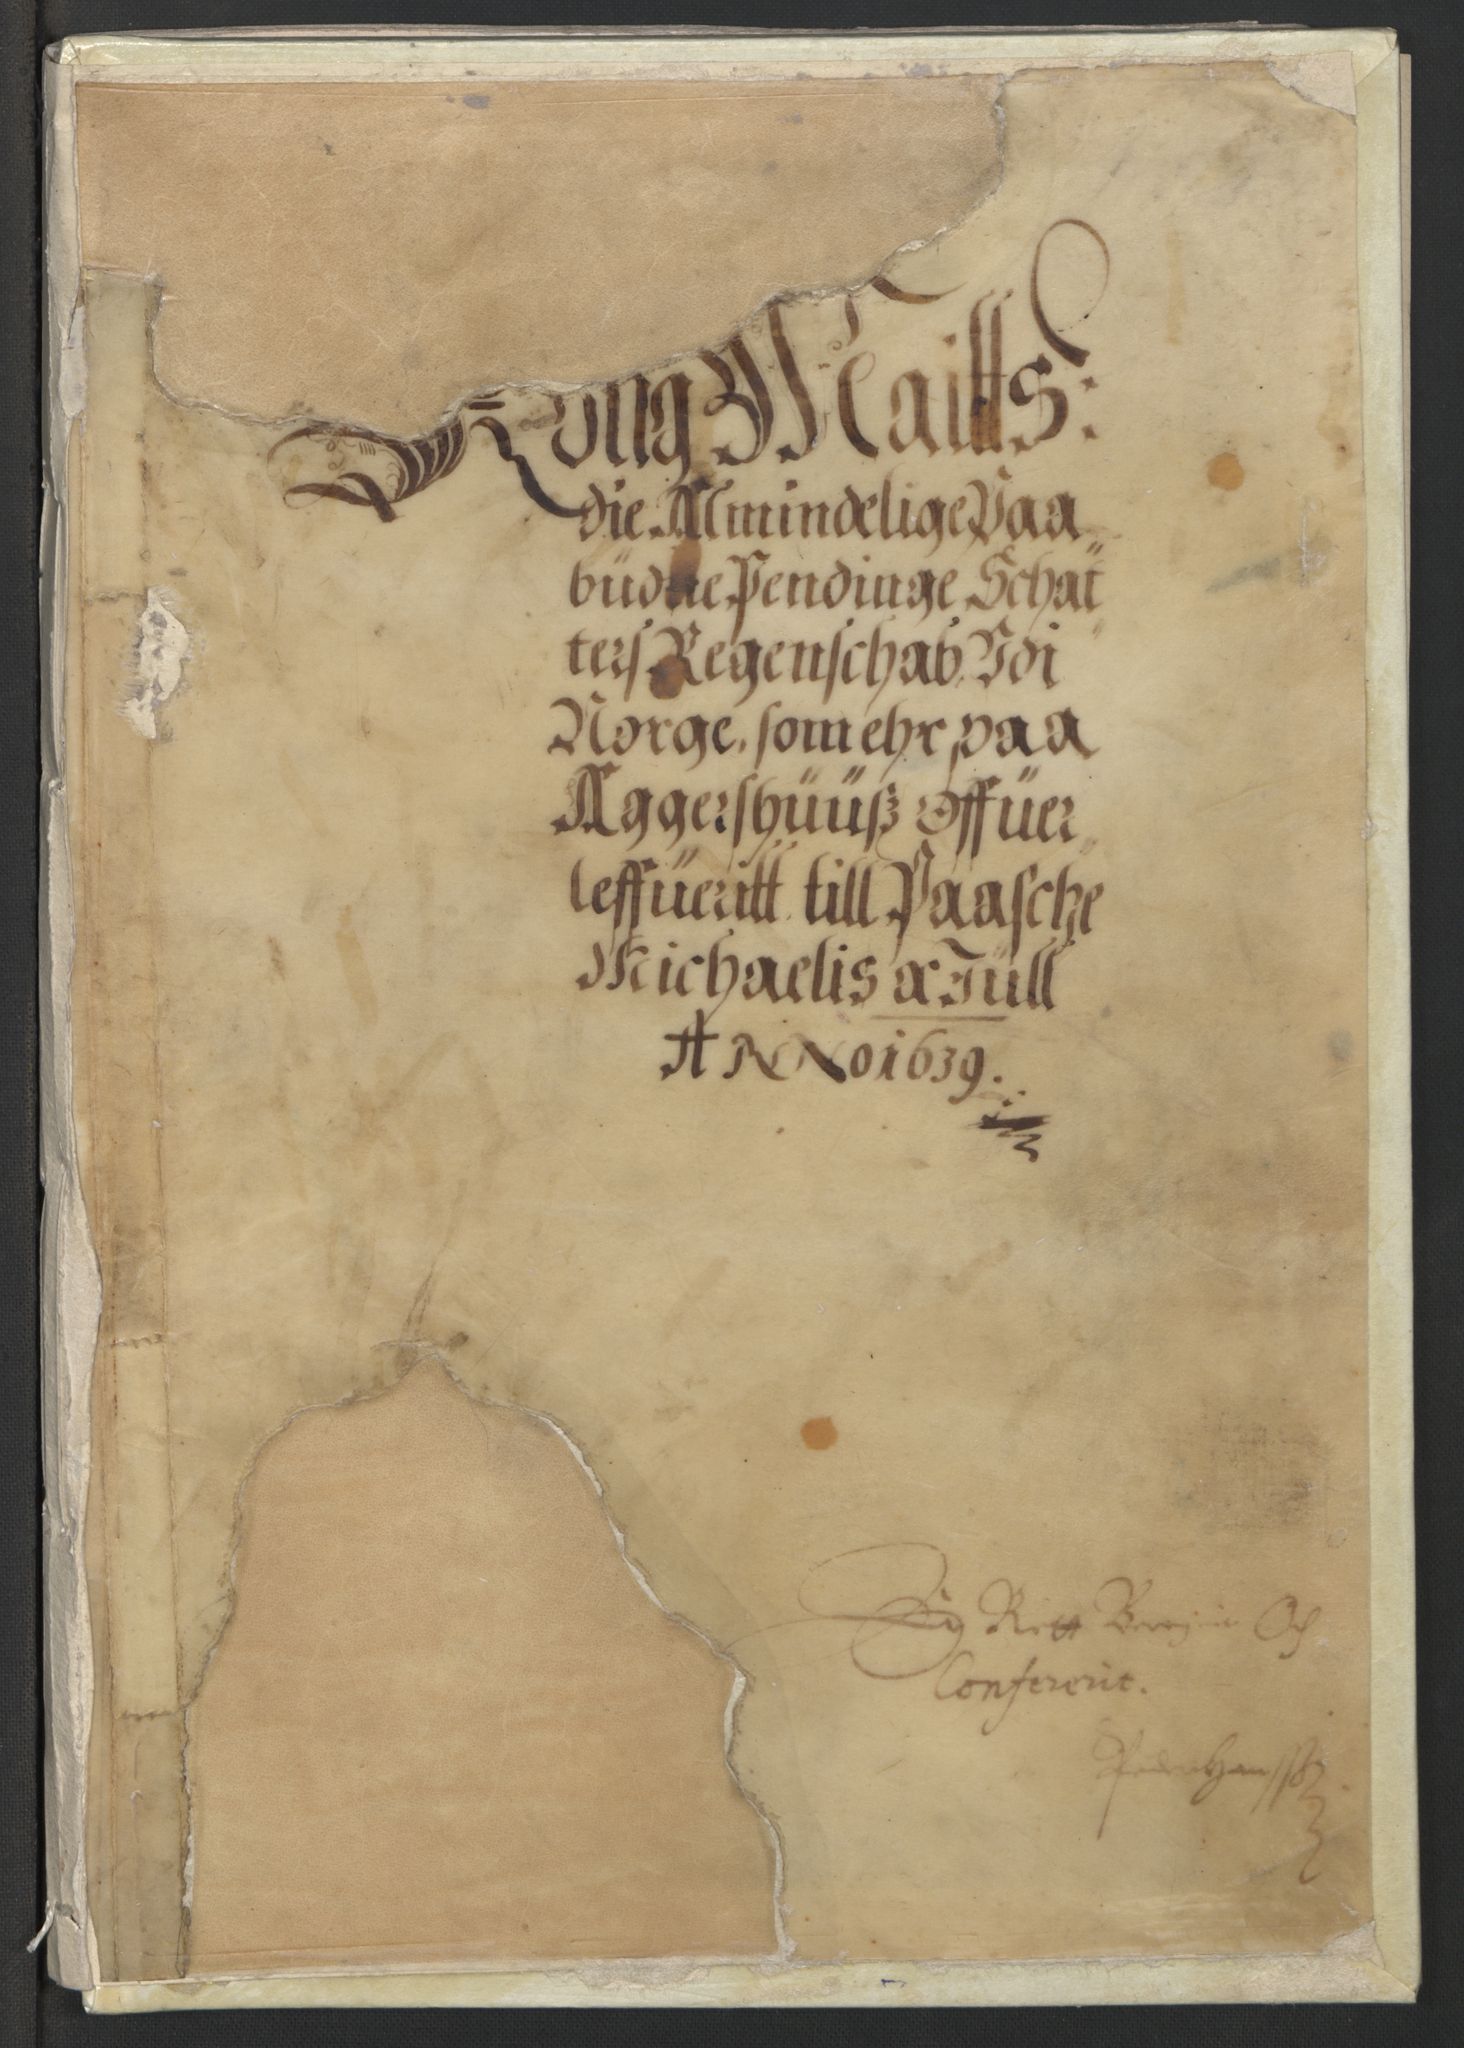 Kong Maitts:
die Almindelige Paa„
büdne Pendinge Schat„
ters Regenschab, Vdi
Norge, som ehr paa
Aggershüüß Offüer„
leffüeritt till Paasche
Michaelis & Jüll
ANNO 1639.
Rett Och
Confererit.
Peder Hanssø